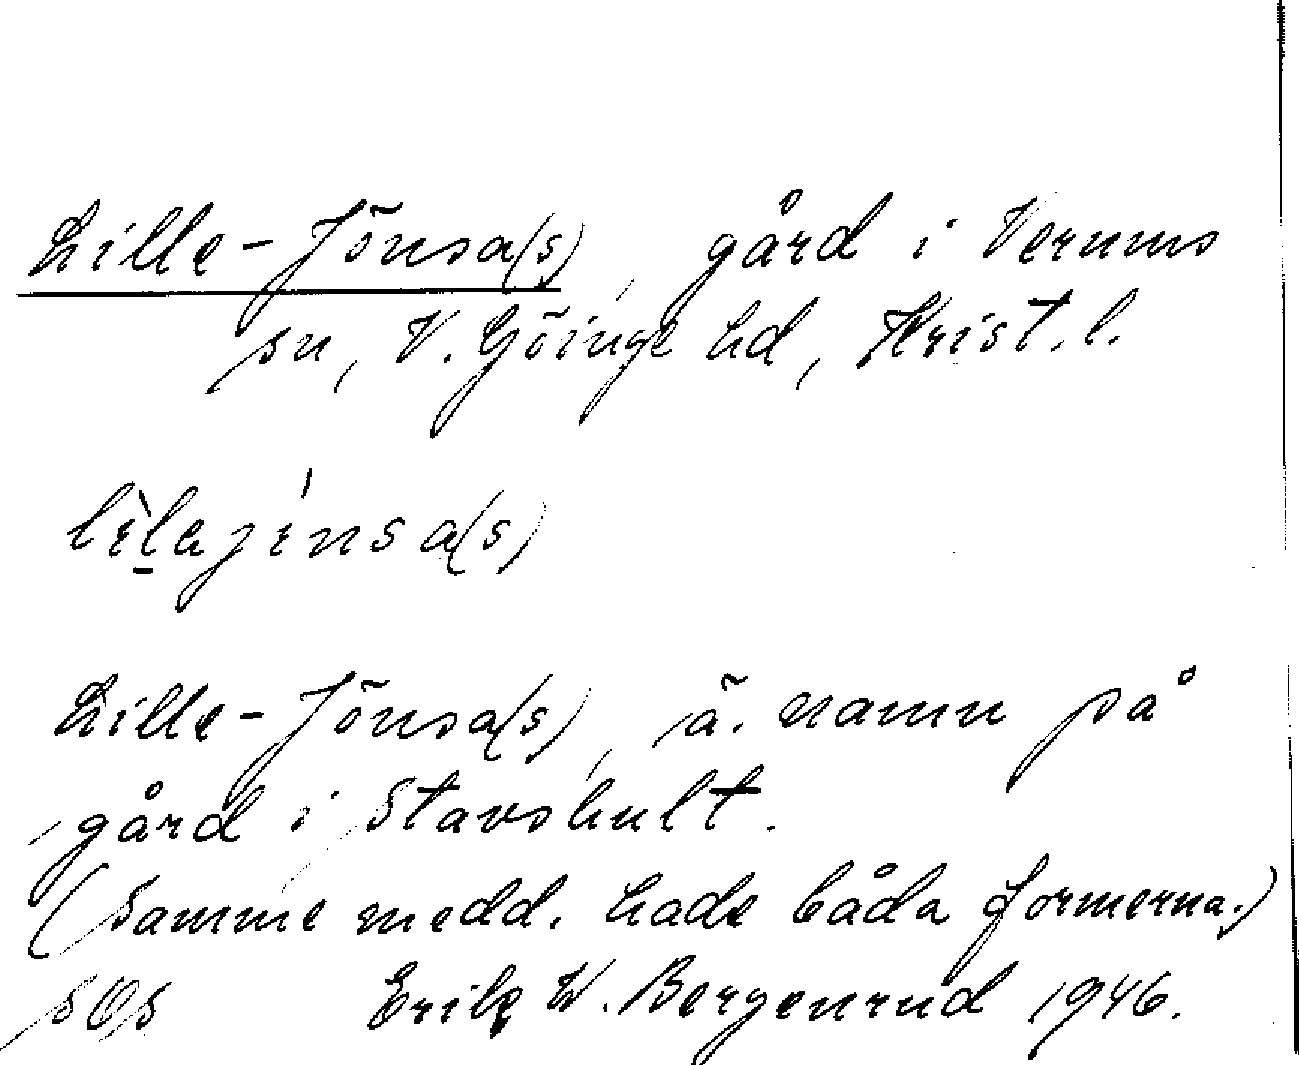 Lille-Jönsa(s), gård i Verums
sn, V. Göinge hd, Krist. l.
lìlajínsa(s)
Lille-Jönsa(s), ä. namn på
gård i Stavshult.
(Samme medd. hade båda formerna.)
SOS Erik W. Bergenrud 1946.